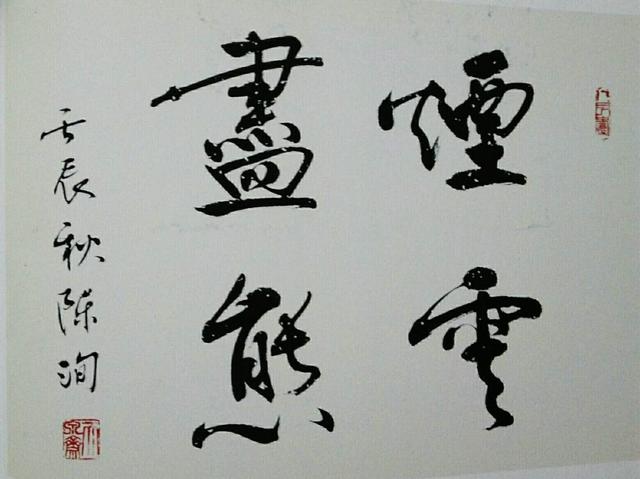 煙雲
盡態
壬辰秋陳洵